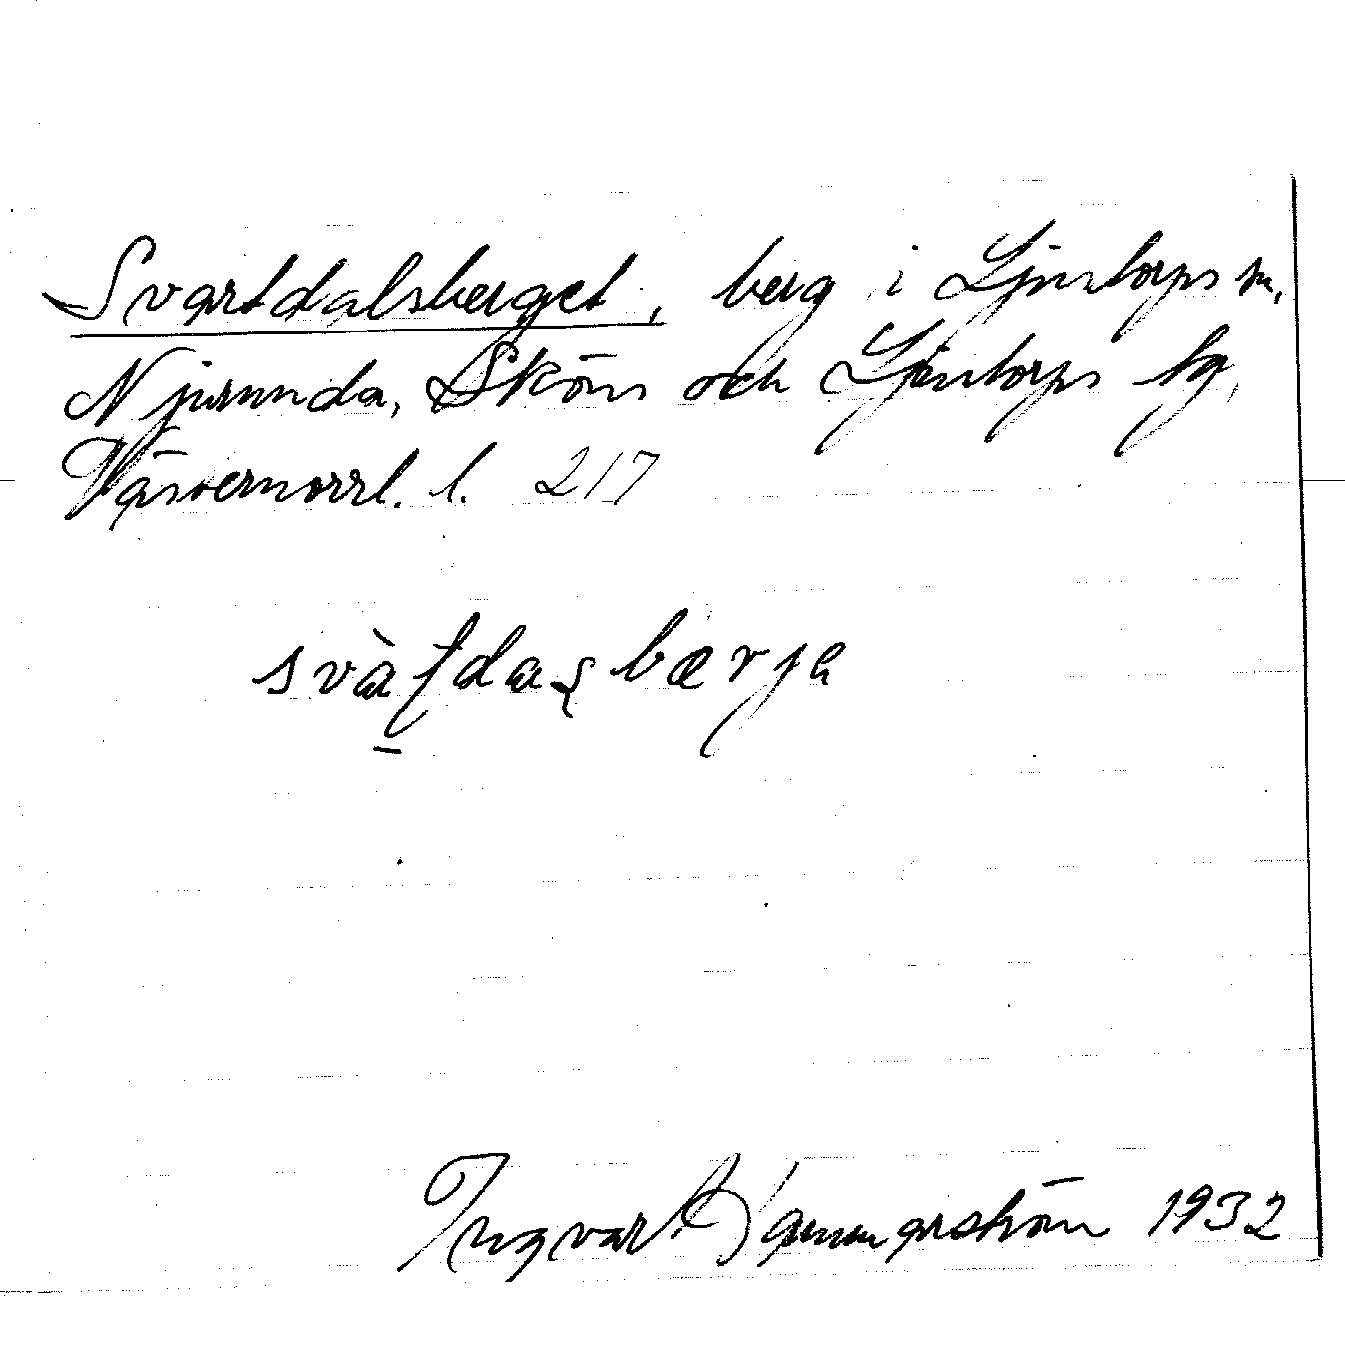 Svartdalsberget, berg i Ljustorps sn,
Njurunda, Sköns och Ljustorps tg,
Västernorrl. l. 217
svàʈdaʂbærja
Ingvar Hammarström 1932